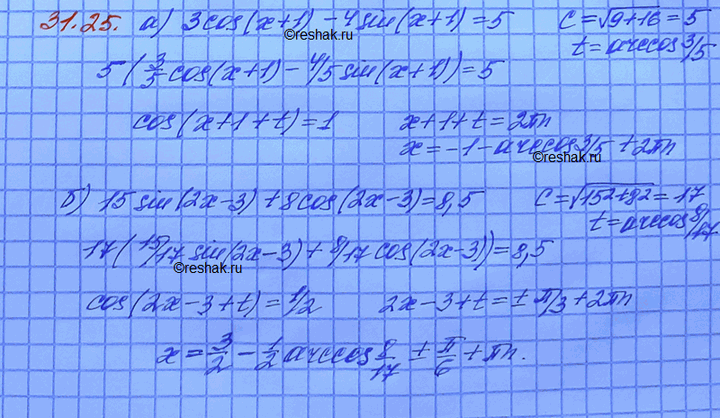 31.25. а) 3cos(x+1) - 4sin(x+1) = 5 C = √9+16 = 5
©reshak.ru
t = arccos 3/5
5(3/5 cos(x+1) - 4/5 sin(x+1)) = 5
cos(x+1+t) = 1 x+1+t = 2πn
x = -1 - arccos 3/5 + 2πn
©reshak.ru
б) 15sin(2x-3) + 8cos(2x-3) = 8,5 C = √15²+8² = 17
t = arccos 8/17
17(15/17 sin(2x-3) + 8/17 cos(2x-3)) = 8,5
©reshak.ru
cos(2x-3+t) = 1/2 2x-3+t = ± π/3 + 2πn
x = 3/2 - 1/2 arccos 8/17 ± π/6 + πn.